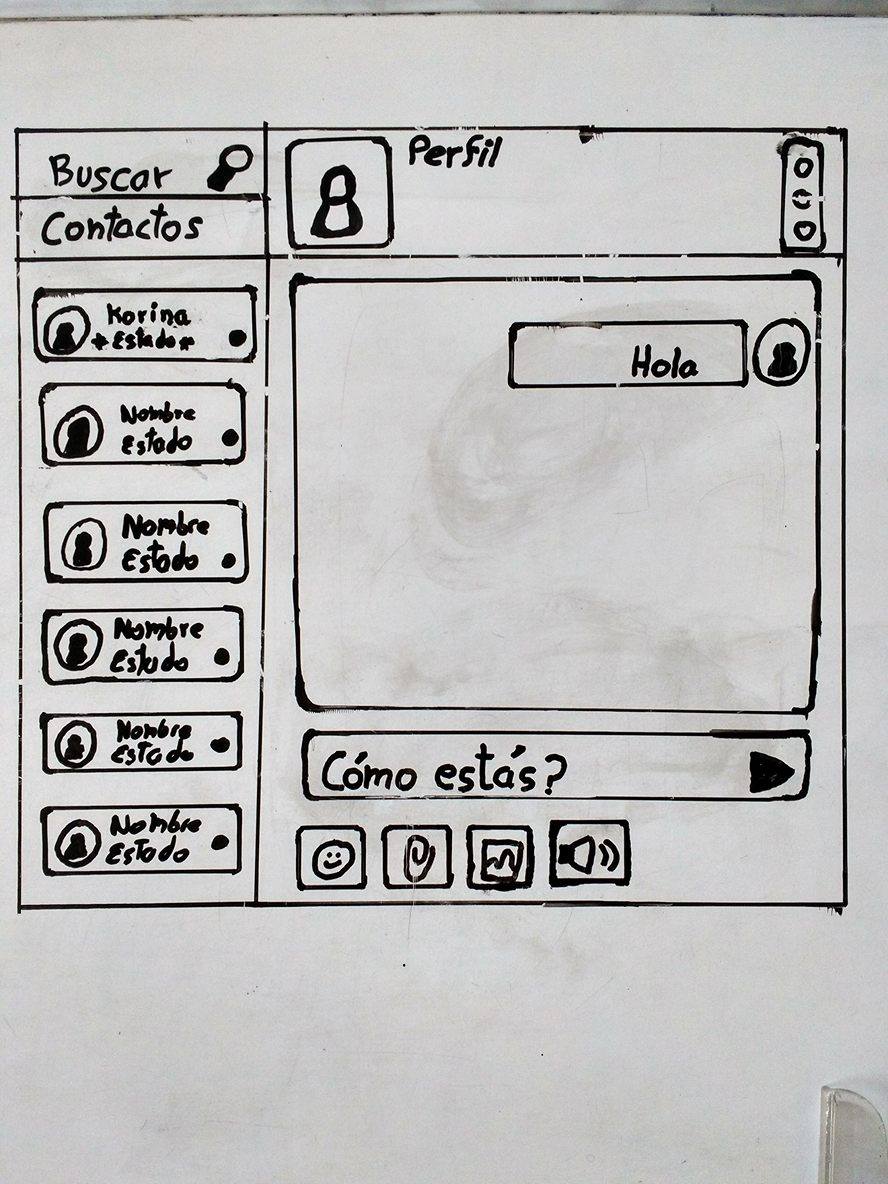 Buscar
Contactos
Korina
*Estado*
Nombre
Estado
Nombre
Estado
Nombre
Estado
Nombre
Estado
Nombre
Estado
Perfil
Hola
Cómo estás?